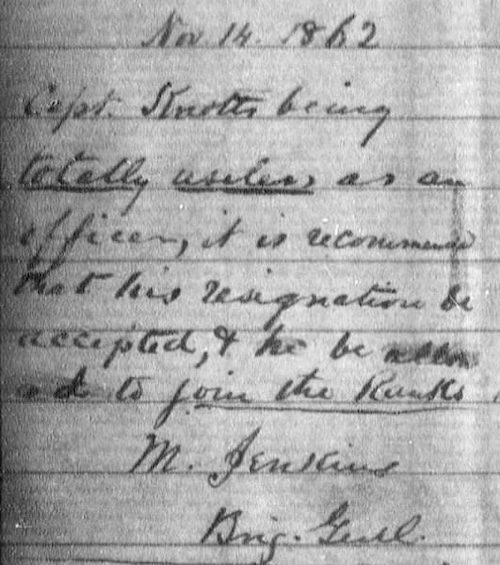 Nov. 14. 1862
Capt. Knotts being
totally useless as an
officer, it is recommended
that his resignation be
accepted, & he be allow
ed to join the Ranks
M. Jenkins
Brig. Genl.